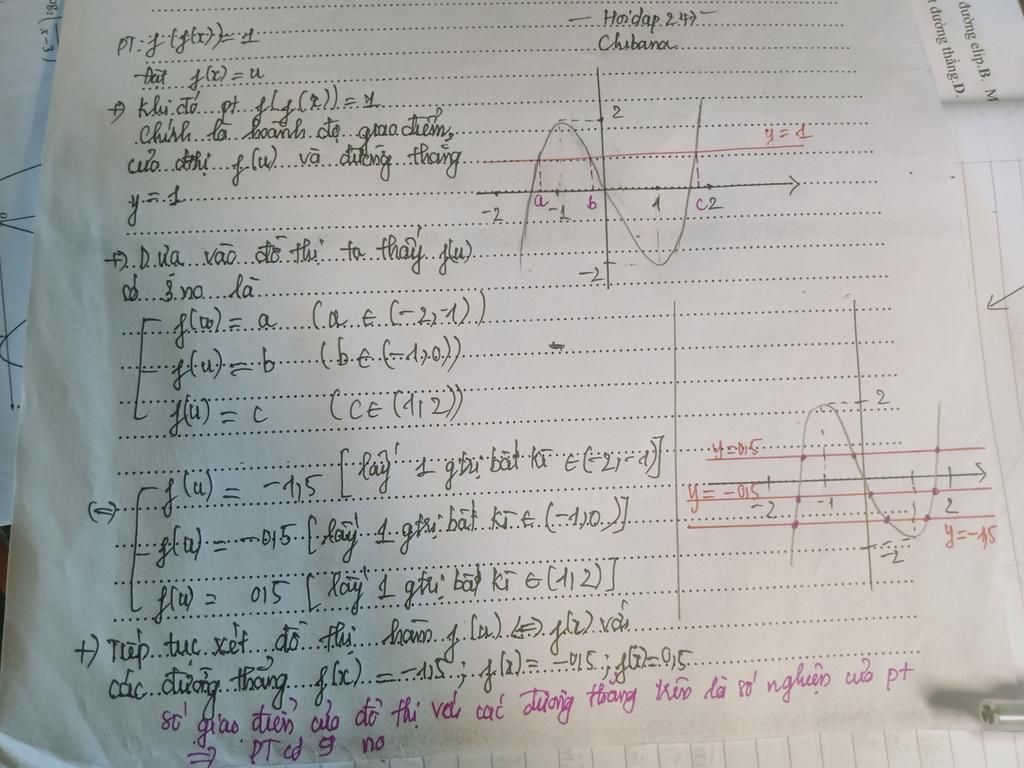 Hoidap247
Chibana
PT: f(f(x)) = 1
Đặt f(x) = u
+) Khi đó pt f(f(x)) = 1
Chính là hoành độ giao điểm
của đthị f(u) và đường thẳng
y = 1
2
y = 1
-2
a
-1
b
1
c
2
-2
+) Dựa vào đồ thị ta thấy f(u)
có 3 no là
f(u) = a (a ∈ (-2,-1))
f(u) = b (b ∈ (-1,0))
f(u) = c (c ∈ (1;2))
<=> f(u) = -1,5 [lấy 1 gtrị bất kì ∈ (-2,-1)]
f(u) = -0,5 [lấy 1 gtrị bất kì ∈ (-1,0)]
f(u) = 0,5 [lấy 1 gtrị bất kì ∈ (1,2)]
2
y=0,5
y = -0,5
-2
-1
2
-2
y=-1,5
+) Tiếp tục xét đồ thị hàm f(u) <=> f(x) với
các đường thẳng f(x) = -1,5; f(x) = -0,5; f(x)=0,5
số giao điểm của đồ thị với các đường thẳng trên là số nghiệm của pt
=> PT có 9 no
đường elip.B. M
t đường thẳng.D.